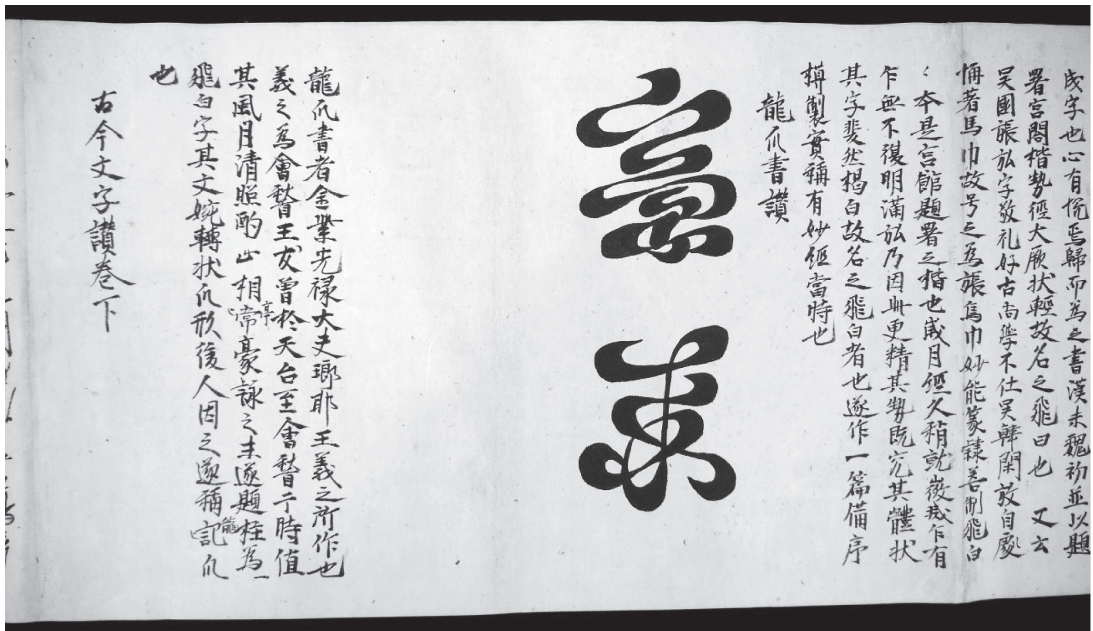 成字也心有悦焉歸而為之書漢末魏初並以題
署宮閣楷勢徑大厥状輕故名之飛白也 又云
吴國張弘字敬礼好古尚學不仕吴敦自處
著馬巾故号之為張烏巾妙能篆隸善制飛白
〻本是宮館題署之楷也歲月經久稍就乍有
乍無不復明滿弘乃因此更精其勢既究其軆状
其字斐然揭白故名之飛白者也遂作一篇備序
製實稱有妙經當時也
龍爪書讃
龍爪書者金紫光禄大夫瑯耶王羲之所作也
羲之為會稽王友曽於天台至會稽于時值
其風月清照酌山相常亭豪詠之末遂題柱為一
飛白字其文婉轉状爪形後人因之遂稱記龍爪
也
古今文字讃卷下